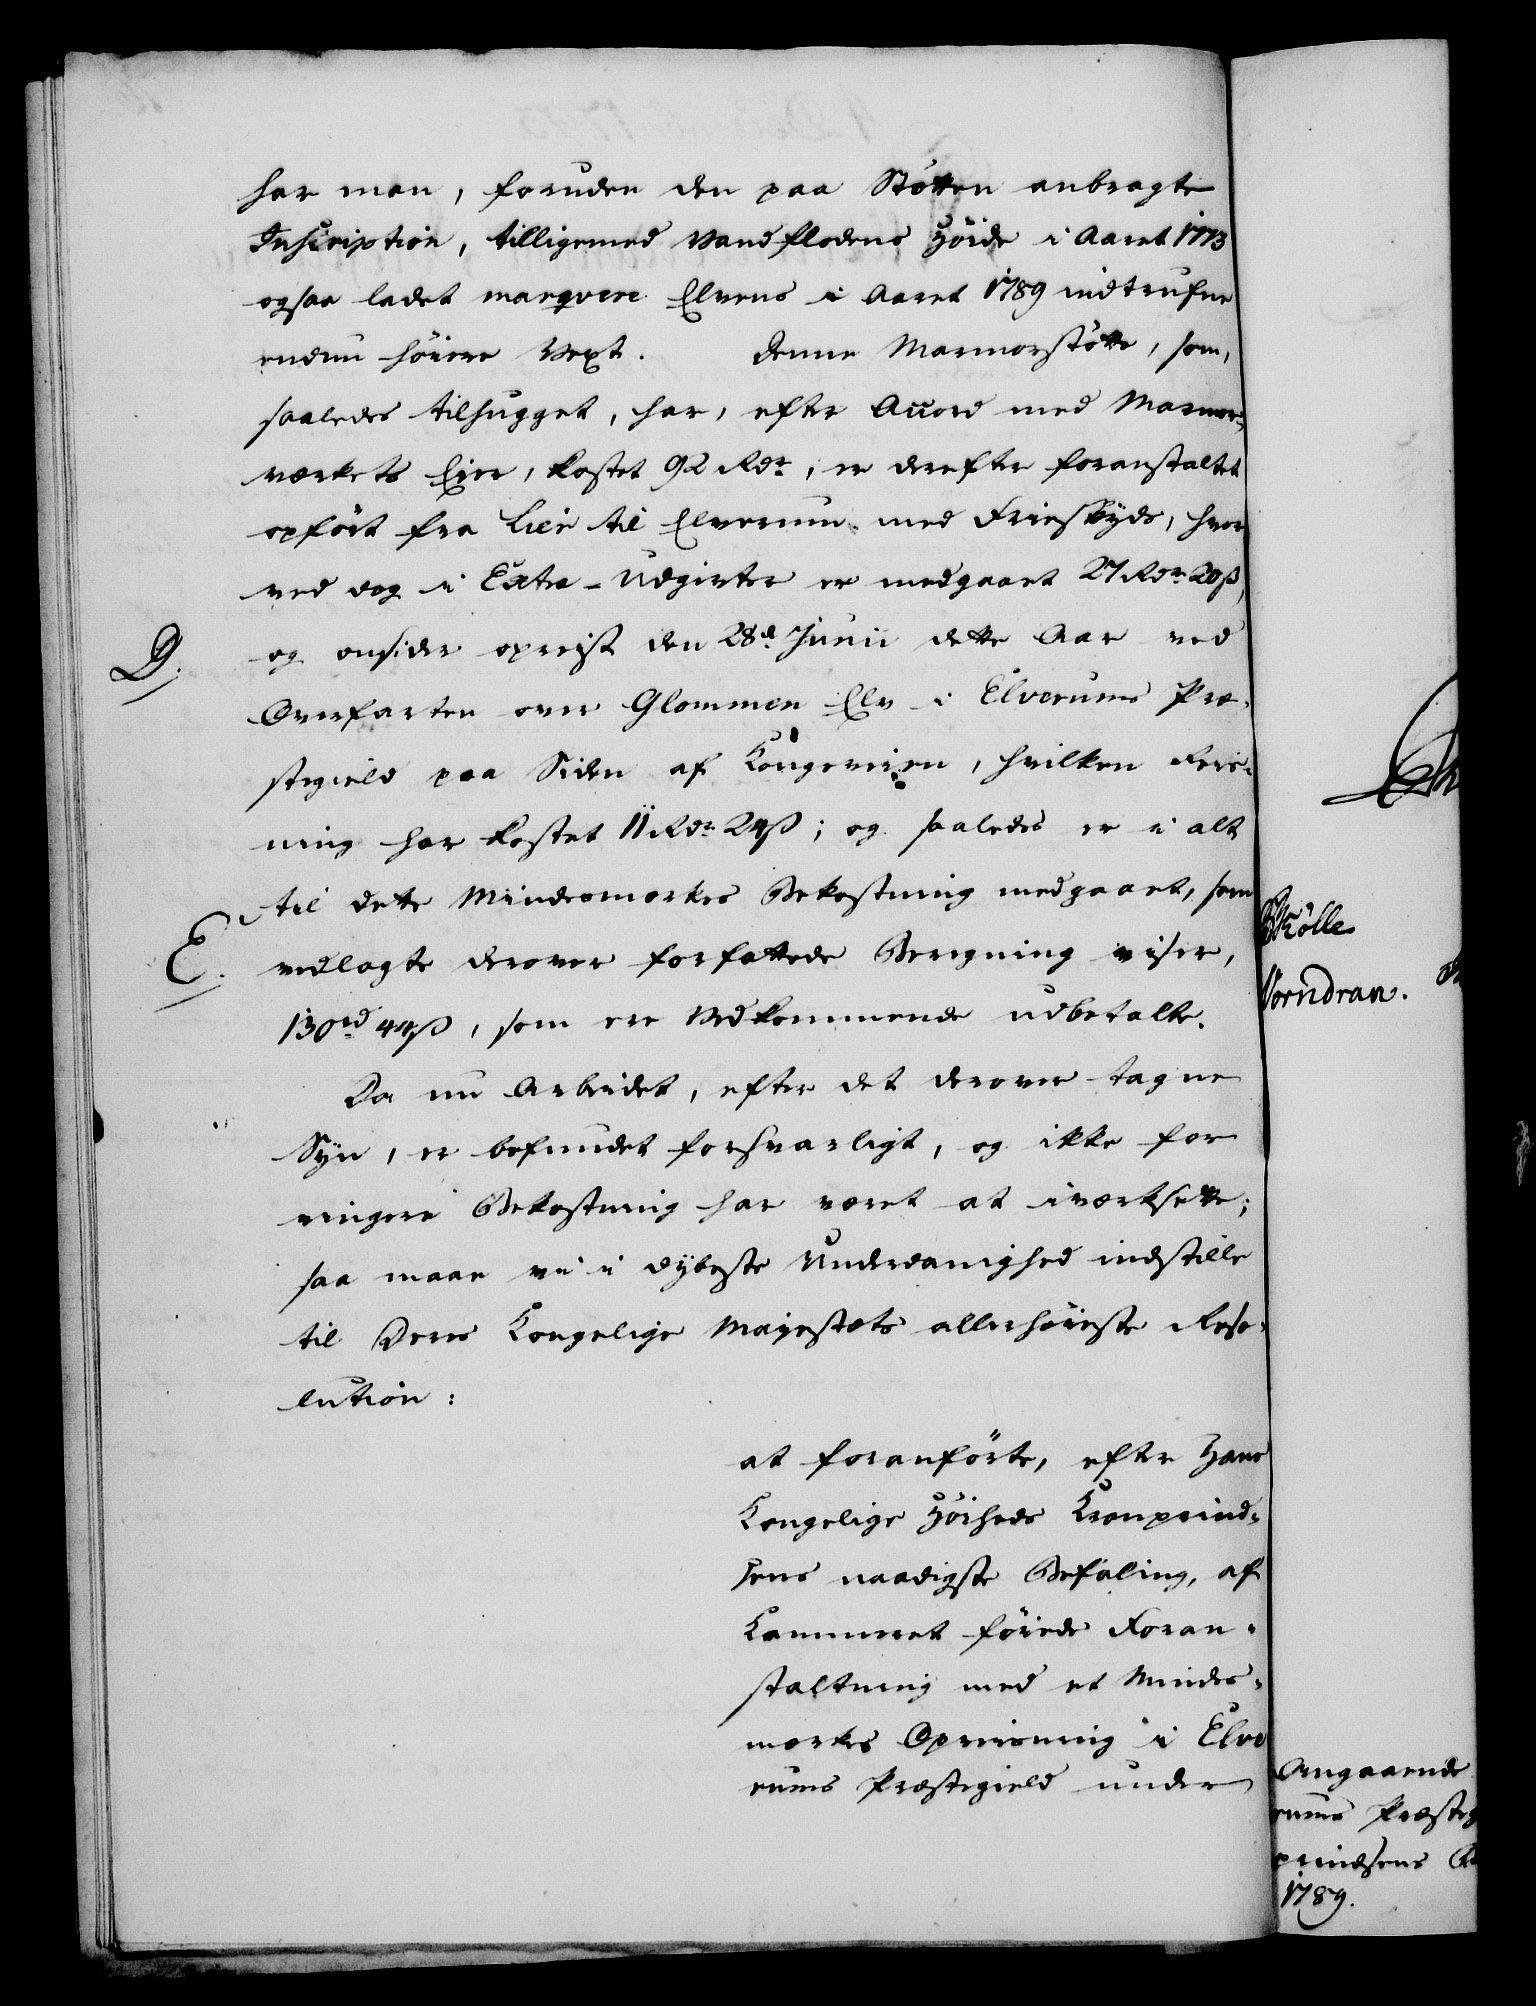 har man, foruden den paa Støtten anbragte
Inscription, tilligemed Vandflodens Høide i Aaret 1773
ogsaa ladet marqvere Elvens i Aaret 1789 indtrufne
endnu høiere Vext. Denne Marmorstøtte, som,
saaledes tilhugget, har, efter Accord med Marmor-
værkets Eier, kostet 92 Rdr, er derefter foranstaltet
opført fra Lier til Elverum med Frieskyds, hvor
ved dog i Extra-Udgivter er medgaaet 27 Rdr 20 ß,
D. og omsider opreist den 28d Junii dette Aar ved
Overfarten over Glommen Elv i Elverums Præ-
stegield paa Siden af Kongeveien, hvilken Reis-
ning har kostet 11 Rdr 24 ß; og saaledes er i alt
til dette Mindesmærkes Bekostning medgaaet, som
E. vedlagte derover forfattede Beregning viser,
130 rd 44 ß, som ere Vedkommende udbetalte.
Da nu Arbeidet, efter det derover tagne
Syn, er befundet forsvarligt, og ikke for
ringere Bekostning har været at iværksætte;
saa maae vi i dybeste Underdanighed indstille
til Deres Kongelige Majestæts allerhøieste Reso-
lution:
at foranførte, efter Hans
Kongelige Høiheds Kronprind-
sens naadigste Befaling, af
Kammeret føiede Foran-
staltning med et Mindes-
mærkes Opreisning i Elve
rums Præstegield under
Skölle
Vorndran.
Angaaende
rums Præsteg
prindsens
1789.